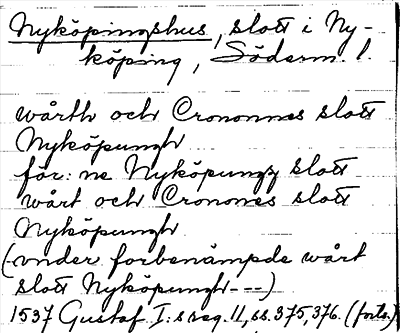 Nyköpingshus, slott i Ny-
köping, Söderm. l.
wårth och Crononnes slott
Nyköpungh
för: ne Nyköpungz slott
wårt och Cronones slott
Nyköpungh
(vnder forbenämpde wårt
slott Nyköpungh ---)
1537 Gustaf I:s reg. 11, ss. 375, 376. (forts.)